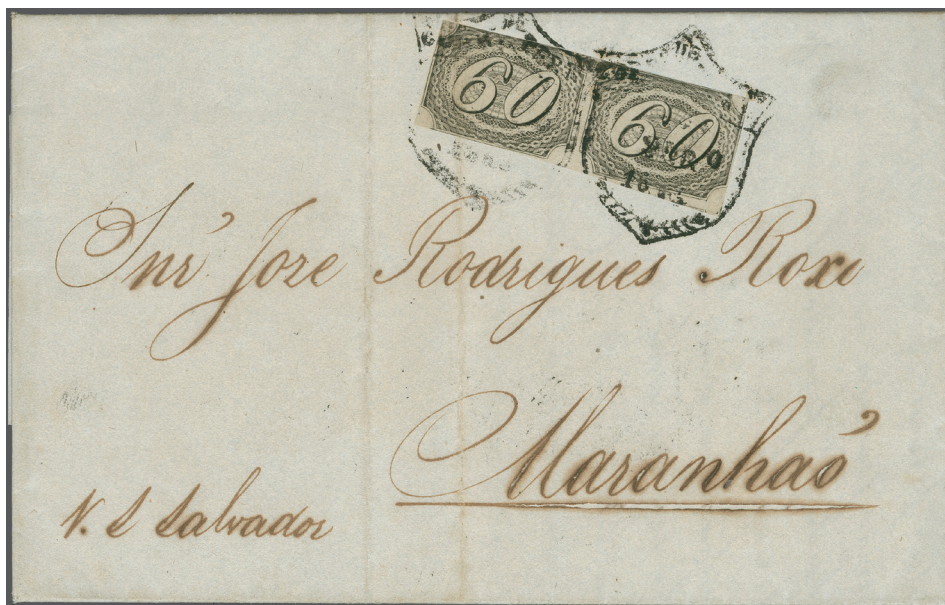 60 60
Snr' Joze Rodrigues Roxo
Maranhaõ
V. S Salvador